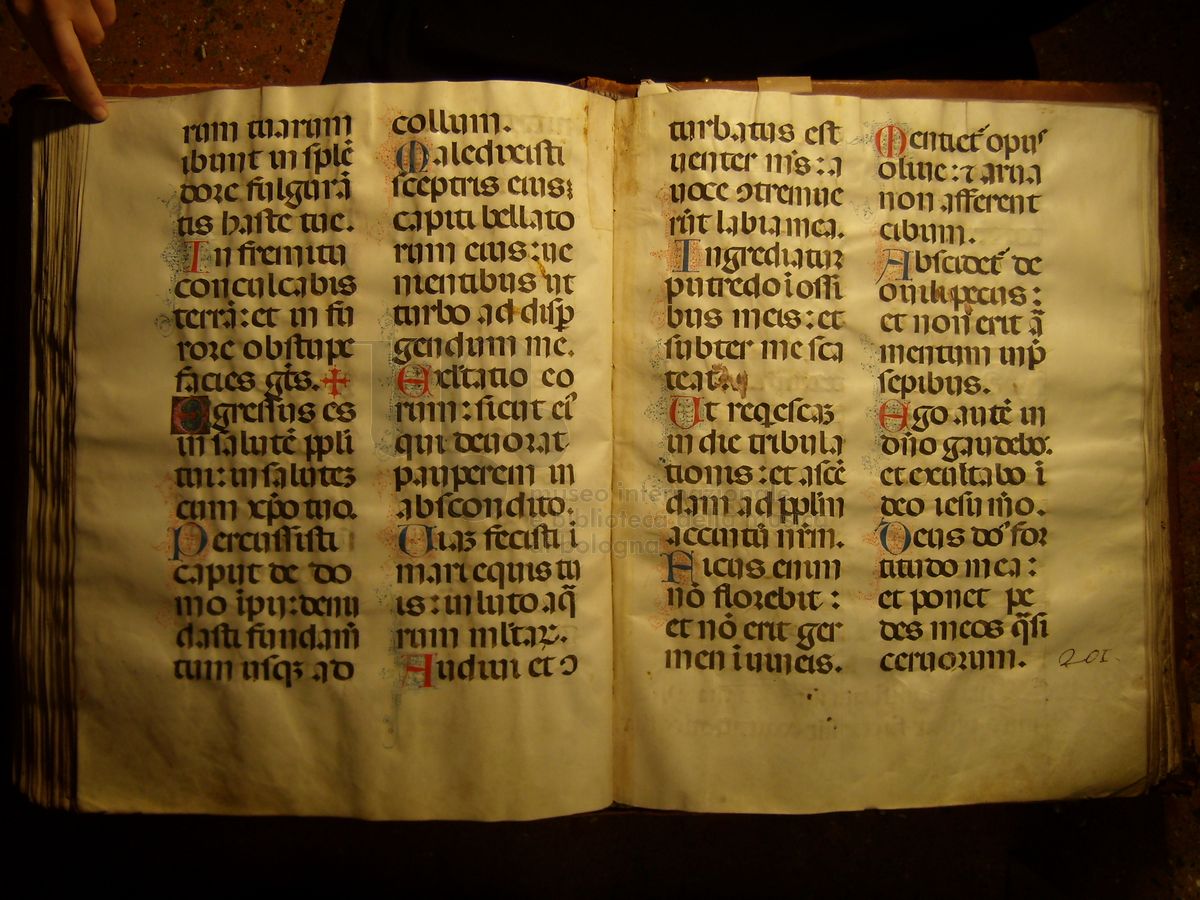 rum tuarum
ibunt in splē
dore fulgurā
tis haste tue.
In fremitu
conculcabis
terrā: et in fu
rore obstupe
facies gētes.
Egressus es
in salutē ppli
tui: in salutez
cum xpo tuo.
Percussisti
caput de do
mo ipij: denu
dasti fundam̄
tum usqz ad
collum.
Maledixisti
sceptris eius:
capiti bellato
rum eius: ue
nientibus ut
turbo ad disp
gendum me.
Exultatio eo
rum: sicut ei'
qui deuorat
pauperem in
abscondito.
Uiaz fecisti i
mari equis tu
is: in luto aq̄
rum mltaꝝ.
Audiui et ɔ
turbatus est
uenter ms: a
uoce ɔtremue
rūt labia mea.
Ingrediatur
putredo ī ossi
bus meis: et
subter me sca
teat.
Ut reqescaz
in die tribula
tionis: et ascē
dam ad pplm
accintū nrm.
Ficus enim
nō florebit:
et nō erit ger
men ī uineis.
Mentiet' opus
oliue: ⁊ arua
non afferent
cibum.
Abscidet' de
ouili pecus:
et non erit ar̄
mentum in p̄
sepibus.
Ego autē in
dño gaudebo:
et exultabo ī
deo iesu mo.
Deus dos for
titudo mea:
et ponet pe
des meos q̄si
ceruorum.
201.
museo internazionale
e biblioteca della musica
di bologna